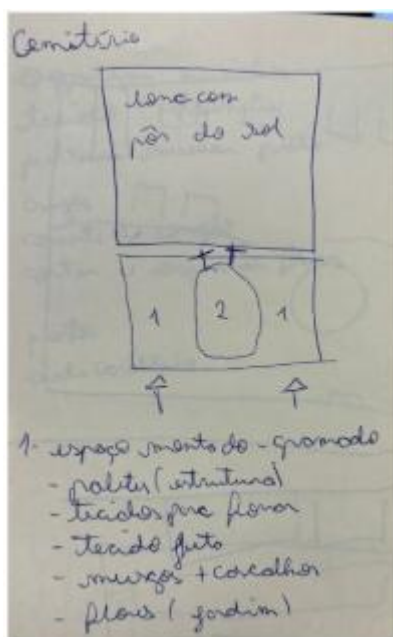 Cemitério
lona com
pôr do sol
1
2
1
1- espaço montado - gramado
- palites (estrutura)
- tecidos pra forrar
- tecido preto
- musgos + cascalhos
- flores (jardim)